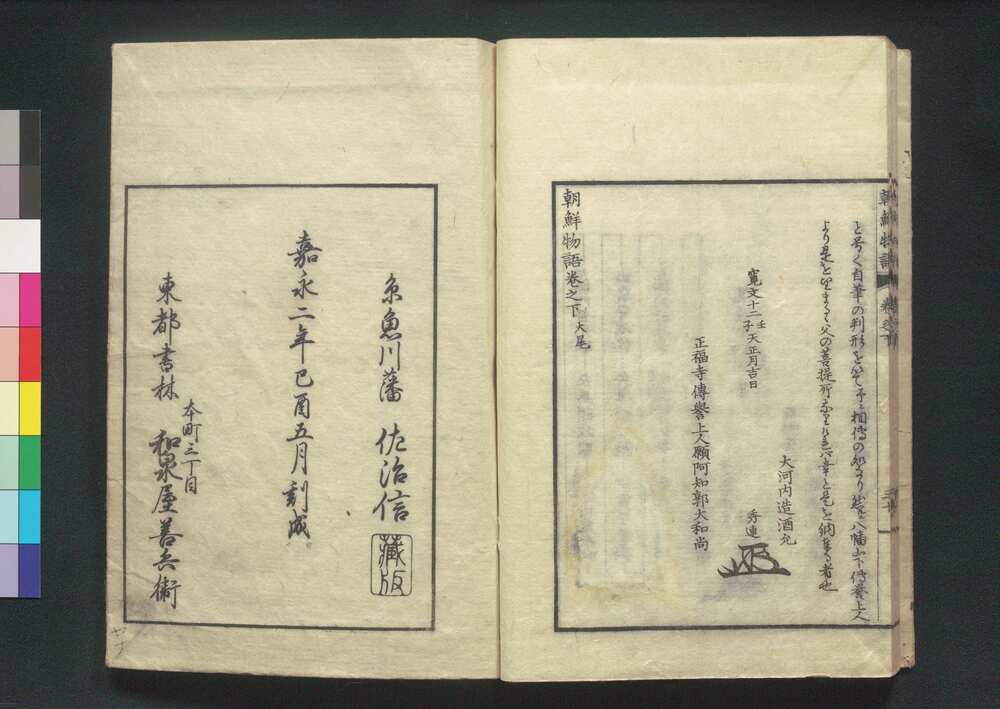 朝鮮物語
と号く自筆の判形を以て予に相傳の処なり然に八幡山下傳誉上人
より是を望まるゝ父の菩提所なれは幸と是を納奉る者也
大河内造酒允
秀連
寛文十二壬子天正月吉日
正福寺傳誉上人願阿知郭大和尚
朝鮮物語巻之下大尾
糸魚川藩 佐治信
藏版
嘉永二年己酉五月刻成
東都書林
本町三丁目
和泉屋善兵衛